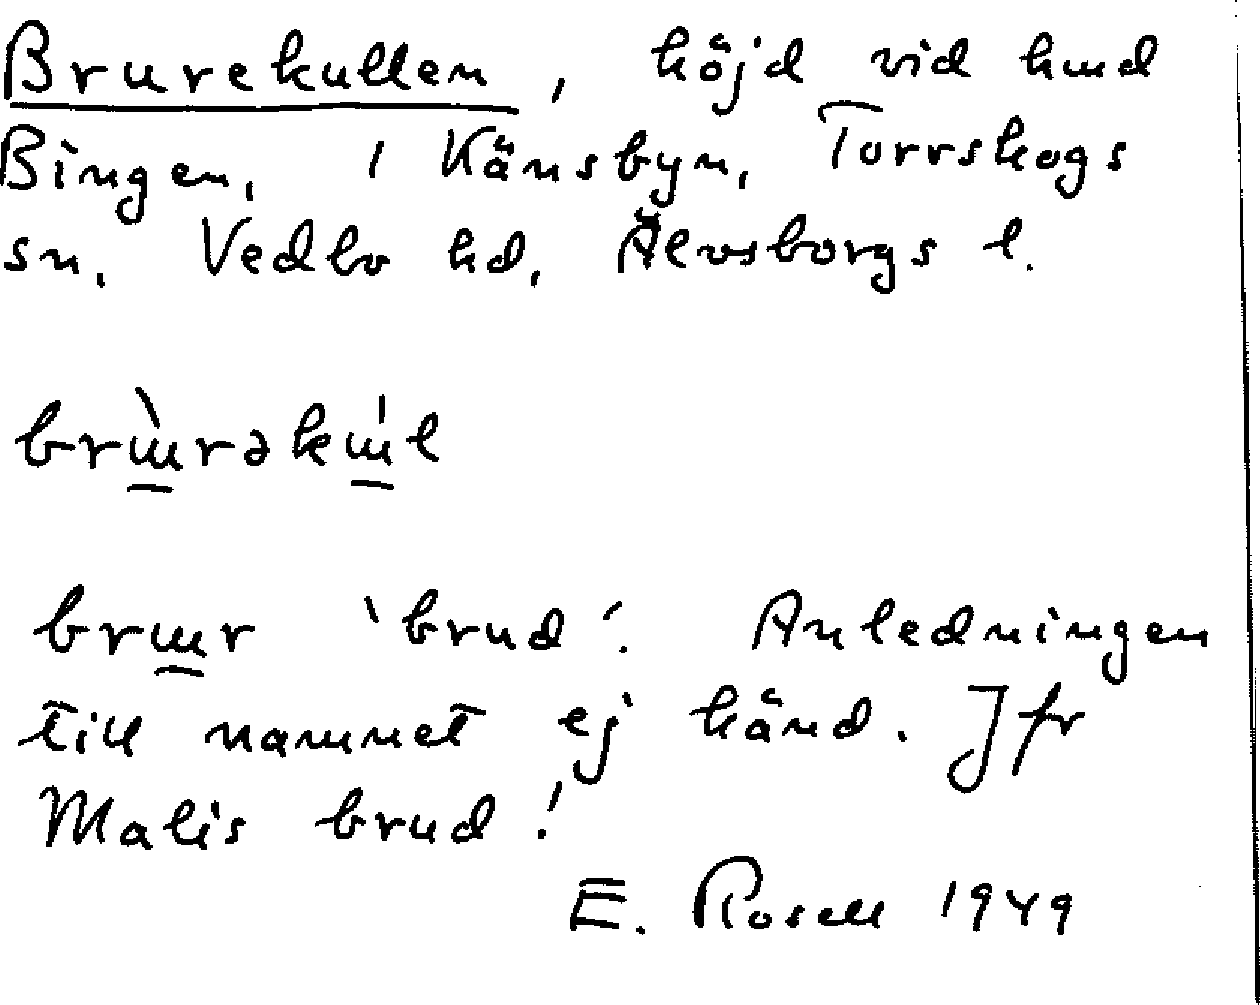 Brurekullen, höjd vid hmd
Bingen, 1 Känsbyn, Torrskogs
sn. Vedbo hd, Älvsborgs l.
brɯ̀rəkɯ́l
brɯr 'brud'. Anledningen
till namnet ej känd. Jfr
Malis brud!
E. Rosell 1949